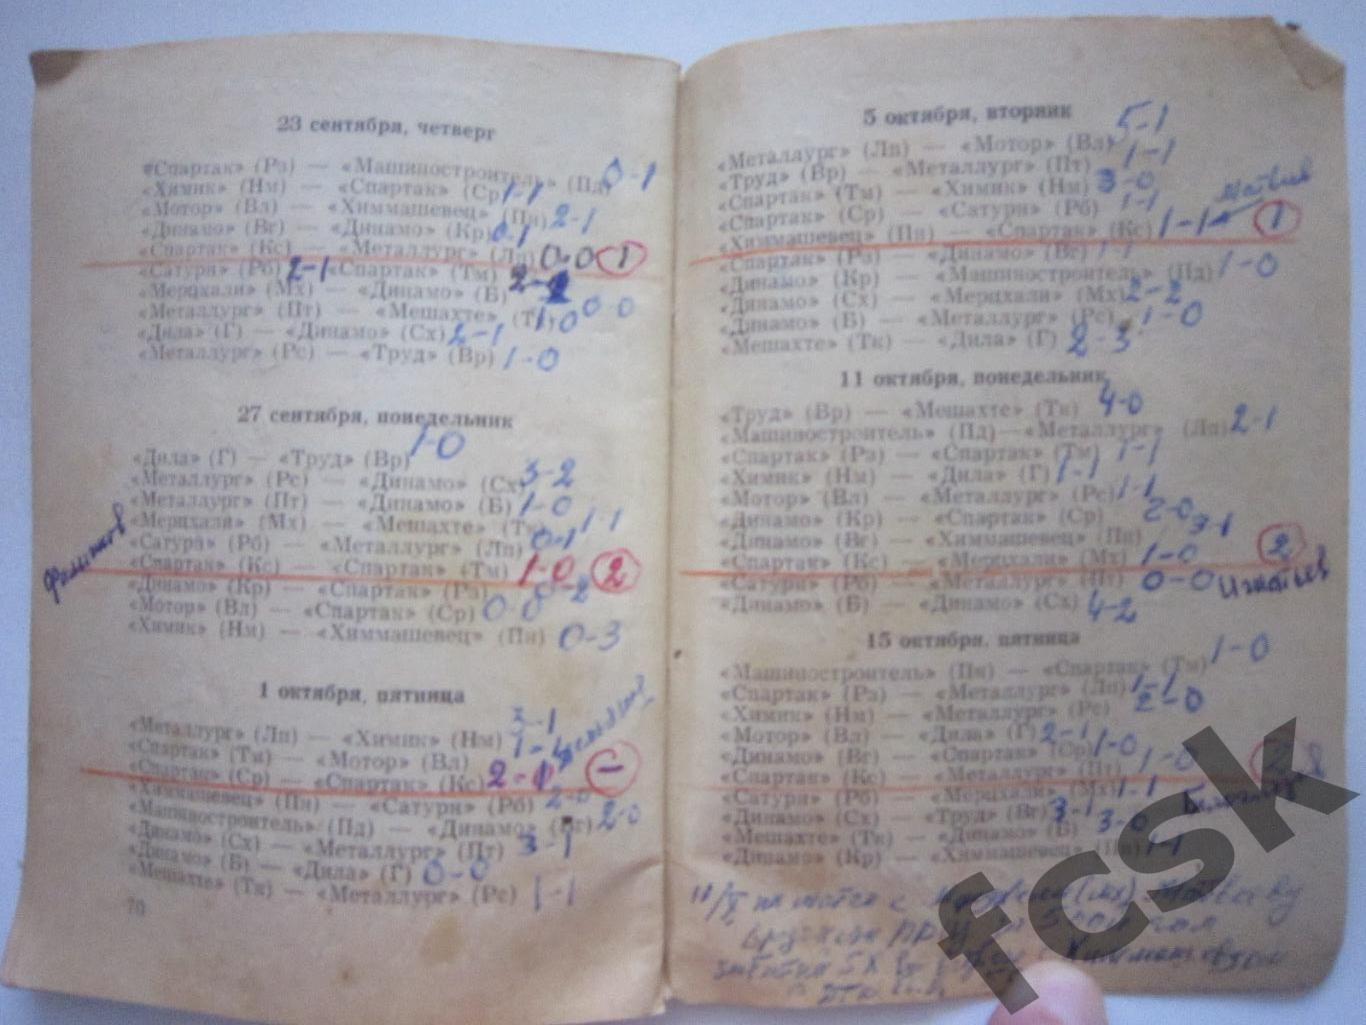 23 сентября, четверг
«Спартак» (Рз) — «Машиностроитель» (Пд) 0-1
«Химик» (Нм) — «Спартак» (Ср) 1-1
«Мотор» (Вл) — «Химмашевец» (Пн) 2-1
«Динамо» (Вг) — «Динамо» (Кр) 0-1
«Спартак» (Кс) — «Металлург» (Лп) 0-0 1
«Сатурн» (Рб) 2-1 «Спартак» (Тм)
«Мерцхали» (Мх) — «Динамо» (Б)
«Металлург» (Пт) — «Мешахте» (Тк) 0-0
«Дила» (Г) — «Динамо» (Сх) 2-1
«Металлург» (Рс) — «Труд» (Вр) 1-0
27 сентября, понедельник
«Дила» (Г) — «Труд» (Вр) 1-0
«Металлург» (Рс) — «Динамо» (Сх) 3-2
«Металлург» (Пт) — «Динамо» (Б) 1-0
«Мерцхали» (Мх) — «Мешахте» (Тк) 1-1
«Сатурн» (Рб) — «Металлург» (Лп) 0-1
«Спартак» (Кс) — «Спартак» (Тм) 1-0 2
«Динамо» (Кр) — «Спартак» (Рз)
«Мотор» (Вл) — «Спартак» (Ср) 0-0
«Химик» (Нм) — «Химмашевец» (Пн) 0-3
1 октября, пятница
«Металлург» (Лп) — «Химик» (Нм) 3-1
«Спартак» (Тм) — «Мотор» (Вл)
«Спартак» (Ср) — «Спартак» (Кс) 2-1 —
«Химмашевец» (Пн) — «Сатурн» (Рб) 2-0
«Машиностроитель» (Пд) — «Динамо» (Вг) 2-0
«Динамо» (Сх) — «Металлург» (Пт) 3-1
«Динамо» (Б) — «Дила» (Г) 0-0
«Мешахте» (Тк) — «Металлург» (Рс) 1-1
70
5 октября, вторник
«Металлург» (Лп) — «Мотор» (Вл) 5-1
«Труд» (Вр) — «Металлург» (Пт) 1-1
«Спартак» (Тм) — «Химик» (Нм) 3-0
«Спартак» (Ср) — «Сатурн» (Рб) 1-1
«Химмашевец» (Пн) — «Спартак» (Кс) 1-1 1
«Спартак» (Рз) — «Динамо» (Вг) 1-1
«Динамо» (Кр) — «Машиностроитель» (Пд) 1-0
«Динамо» (Сх) — «Мерцхали» (Мх) 2-2
«Динамо» (Б) — «Металлург» (Рс) 1-0
«Мешахте» (Тк) — «Дила» (Г) 2-3
11 октября, понедельник
«Труд» (Вр) — «Мешахте» (Тк) 4-0
«Машиностроитель» (Пд) — «Металлург» (Лп) 2-1
«Спартак» (Рз) — «Спартак» (Тм) 1-1
«Химик» (Нм) — «Дила» (Г) 1-1
«Мотор» (Вл) — «Металлург» (Рс) 1-1
«Динамо» (Кр) — «Спартак» (Ср) 2-0
«Динамо» (Вг) — «Химмашевец» (Пн) 3-1
«Спартак» (Кс) — «Мерцхали» (Мх) 1-0 2
«Сатурн» (Рб) — «Металлург» (Пт) 0-0 Игнатьев
«Динамо» (Б) — «Динамо» (Сх) 4-2
15 октября, пятница
«Машиностроитель» (Пн) — «Спартак» (Тм) 1-0
«Спартак» (Рз) — «Металлург» (Лп) 1-1
«Химик» (Нм) — «Металлург» (Рс) 2-0
«Мотор» (Вл) — «Дила» (Г) 2-1
«Динамо» (Вг) — «Спартак» (Ср) 1-0
«Спартак» (Кс) — «Металлург» (Пт) 1-0 2
«Сатурн» (Рб) — «Мерцхали» (Мх) 1-1
«Динамо» (Сх) — «Труд» (Вр) 3-1
«Мешахте» (Тк) — «Динамо» (Б) 3-0
«Динамо» (Кр) — «Химмашевец» (Пн) 1-1
fcsk